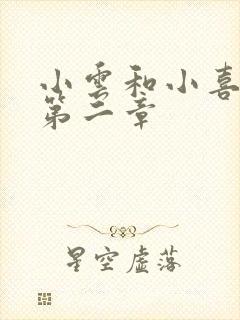 小雲和小喜
第二章
星空虛落